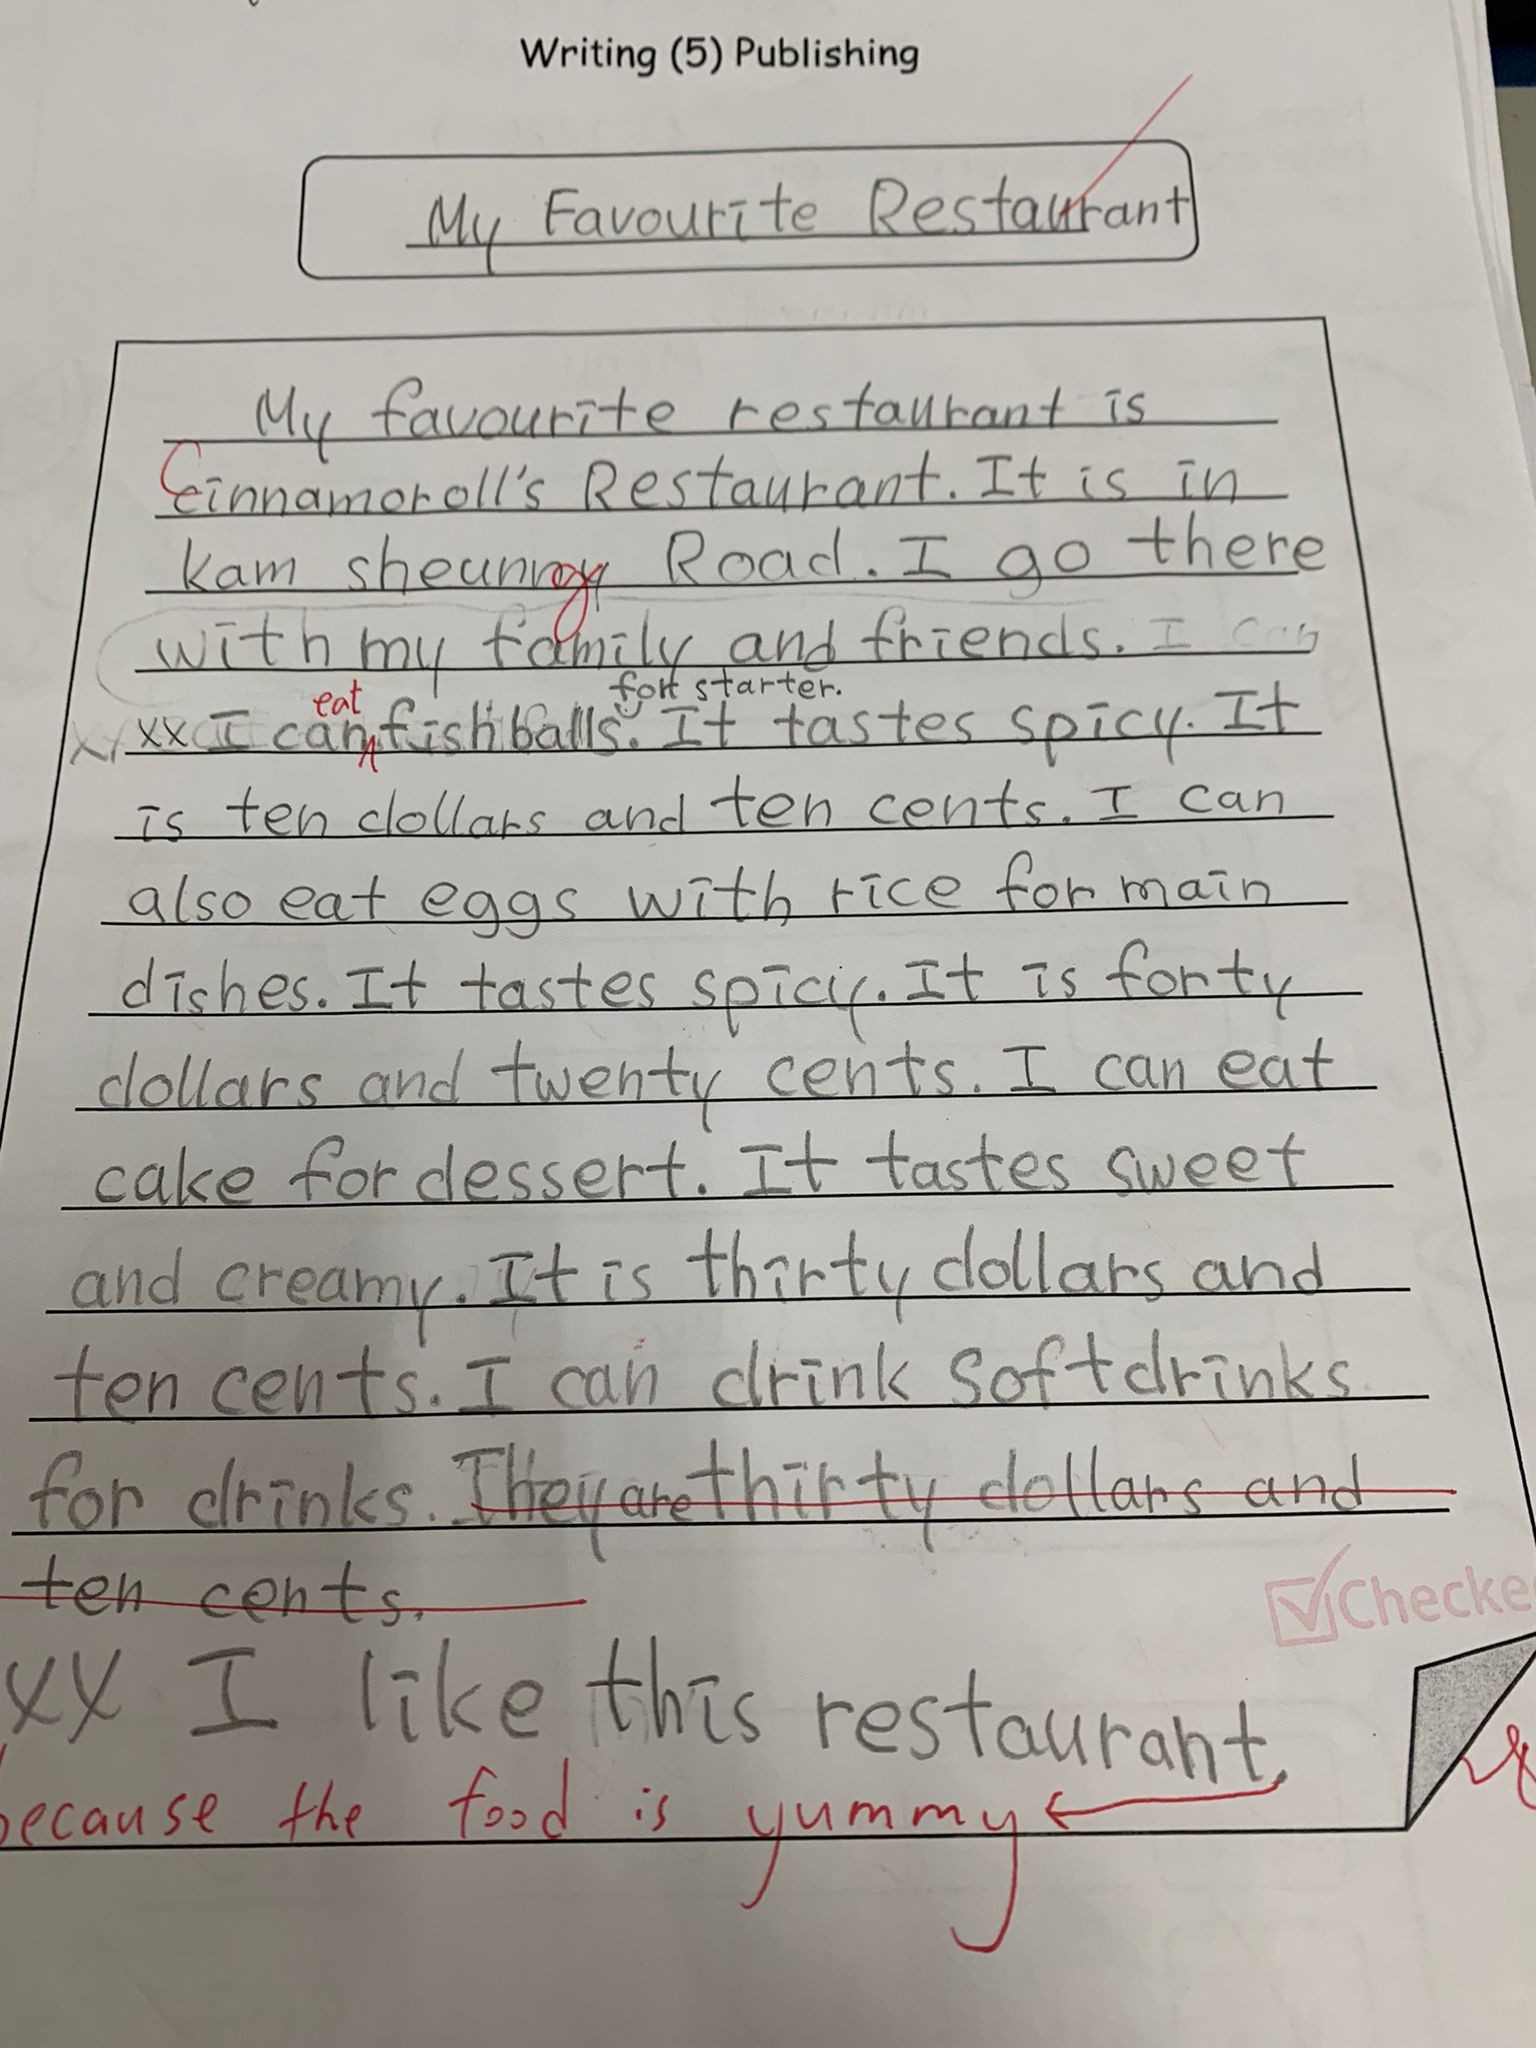 Writing (5) Publishing
My Favourite Restaurant
My favourite restaurant is
Cinnamoroll's Restaurant. It is in
kam sheung Road. I go there
with my family and friends. I can
eat for starter.
xx I can fish balls. It tastes spicy. It
is ten dollars and ten cents. I can
also eat eggs with rice for main
dishes. It tastes spicy. It is forty
dollars and twenty cents. I can eat
cake for dessert. It tastes sweet
and creamy. It is thirty dollars and
ten cents. I can drink softdrinks
for drinks. They are thirty dollars and
ten cents.
Checke
xx I like this restaurant.
because the food is yummy